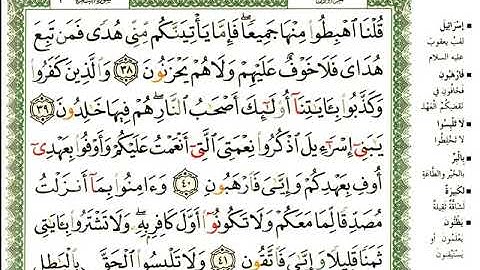 قُلْنَا ٱهْبِطُوا۟ مِنْهَا جَمِيعًا ۖ فَإِمَّا يَأْتِيَنَّكُم مِّنِّى هُدًى فَمَن تَبِعَ
هُدَاىَ فَلَا خَوْفٌ عَلَيْهِمْ وَلَا هُمْ يَحْزَنُونَ ٣٨ وَٱلَّذِينَ كَفَرُوا۟
وَكَذَّبُوا۟ بِـَٔايَٰتِنَآ أُو۟لَٰٓئِكَ أَصْحَٰبُ ٱلنَّارِ ۖ هُمْ فِيهَا خَٰلِدُونَ ٣٩
يَٰبَنِىٓ إِسْرَٰٓءِيلَ ٱذْكُرُوا۟ نِعْمَتِىَ ٱلَّتِىٓ أَنْعَمْتُ عَلَيْكُمْ وَأَوْفُوا۟ بِعَهْدِىٓ
أُوفِ بِعَهْدِكُمْ وَإِيَّٰىَ فَٱرْهَبُونِ ٤٠ وَءَامِنُوا۟ بِمَآ أَنزَلْتُ
مُصَدِّقًا لِّمَا مَعَكُمْ وَلَا تَكُونُوٓا۟ أَوَّلَ كَافِرٍۭ بِهِۦ ۖ وَلَا تَشْتَرُوا۟ بِـَٔايَٰتِى
ثَمَنًا قَلِيلًا وَإِيَّٰىَ فَٱتَّقُونِ ٤١ وَلَا تَلْبِسُوا۟ ٱلْحَقَّ بِٱلْبَٰطِلِ
إِسْرَائِيلَ
لقب يعقوب
عليه السلام
فَارْهَبُونِ
فخافون في
نقضكم العهد
لَا تَلْبِسُوا
لا تخلطوا
بِالْبِرِّ
بالخير والطاعة
لَكَبِيرَةٌ
لشاقة ثقيلة
يَظُنُّونَ
يعلمون أو
يستيقنون